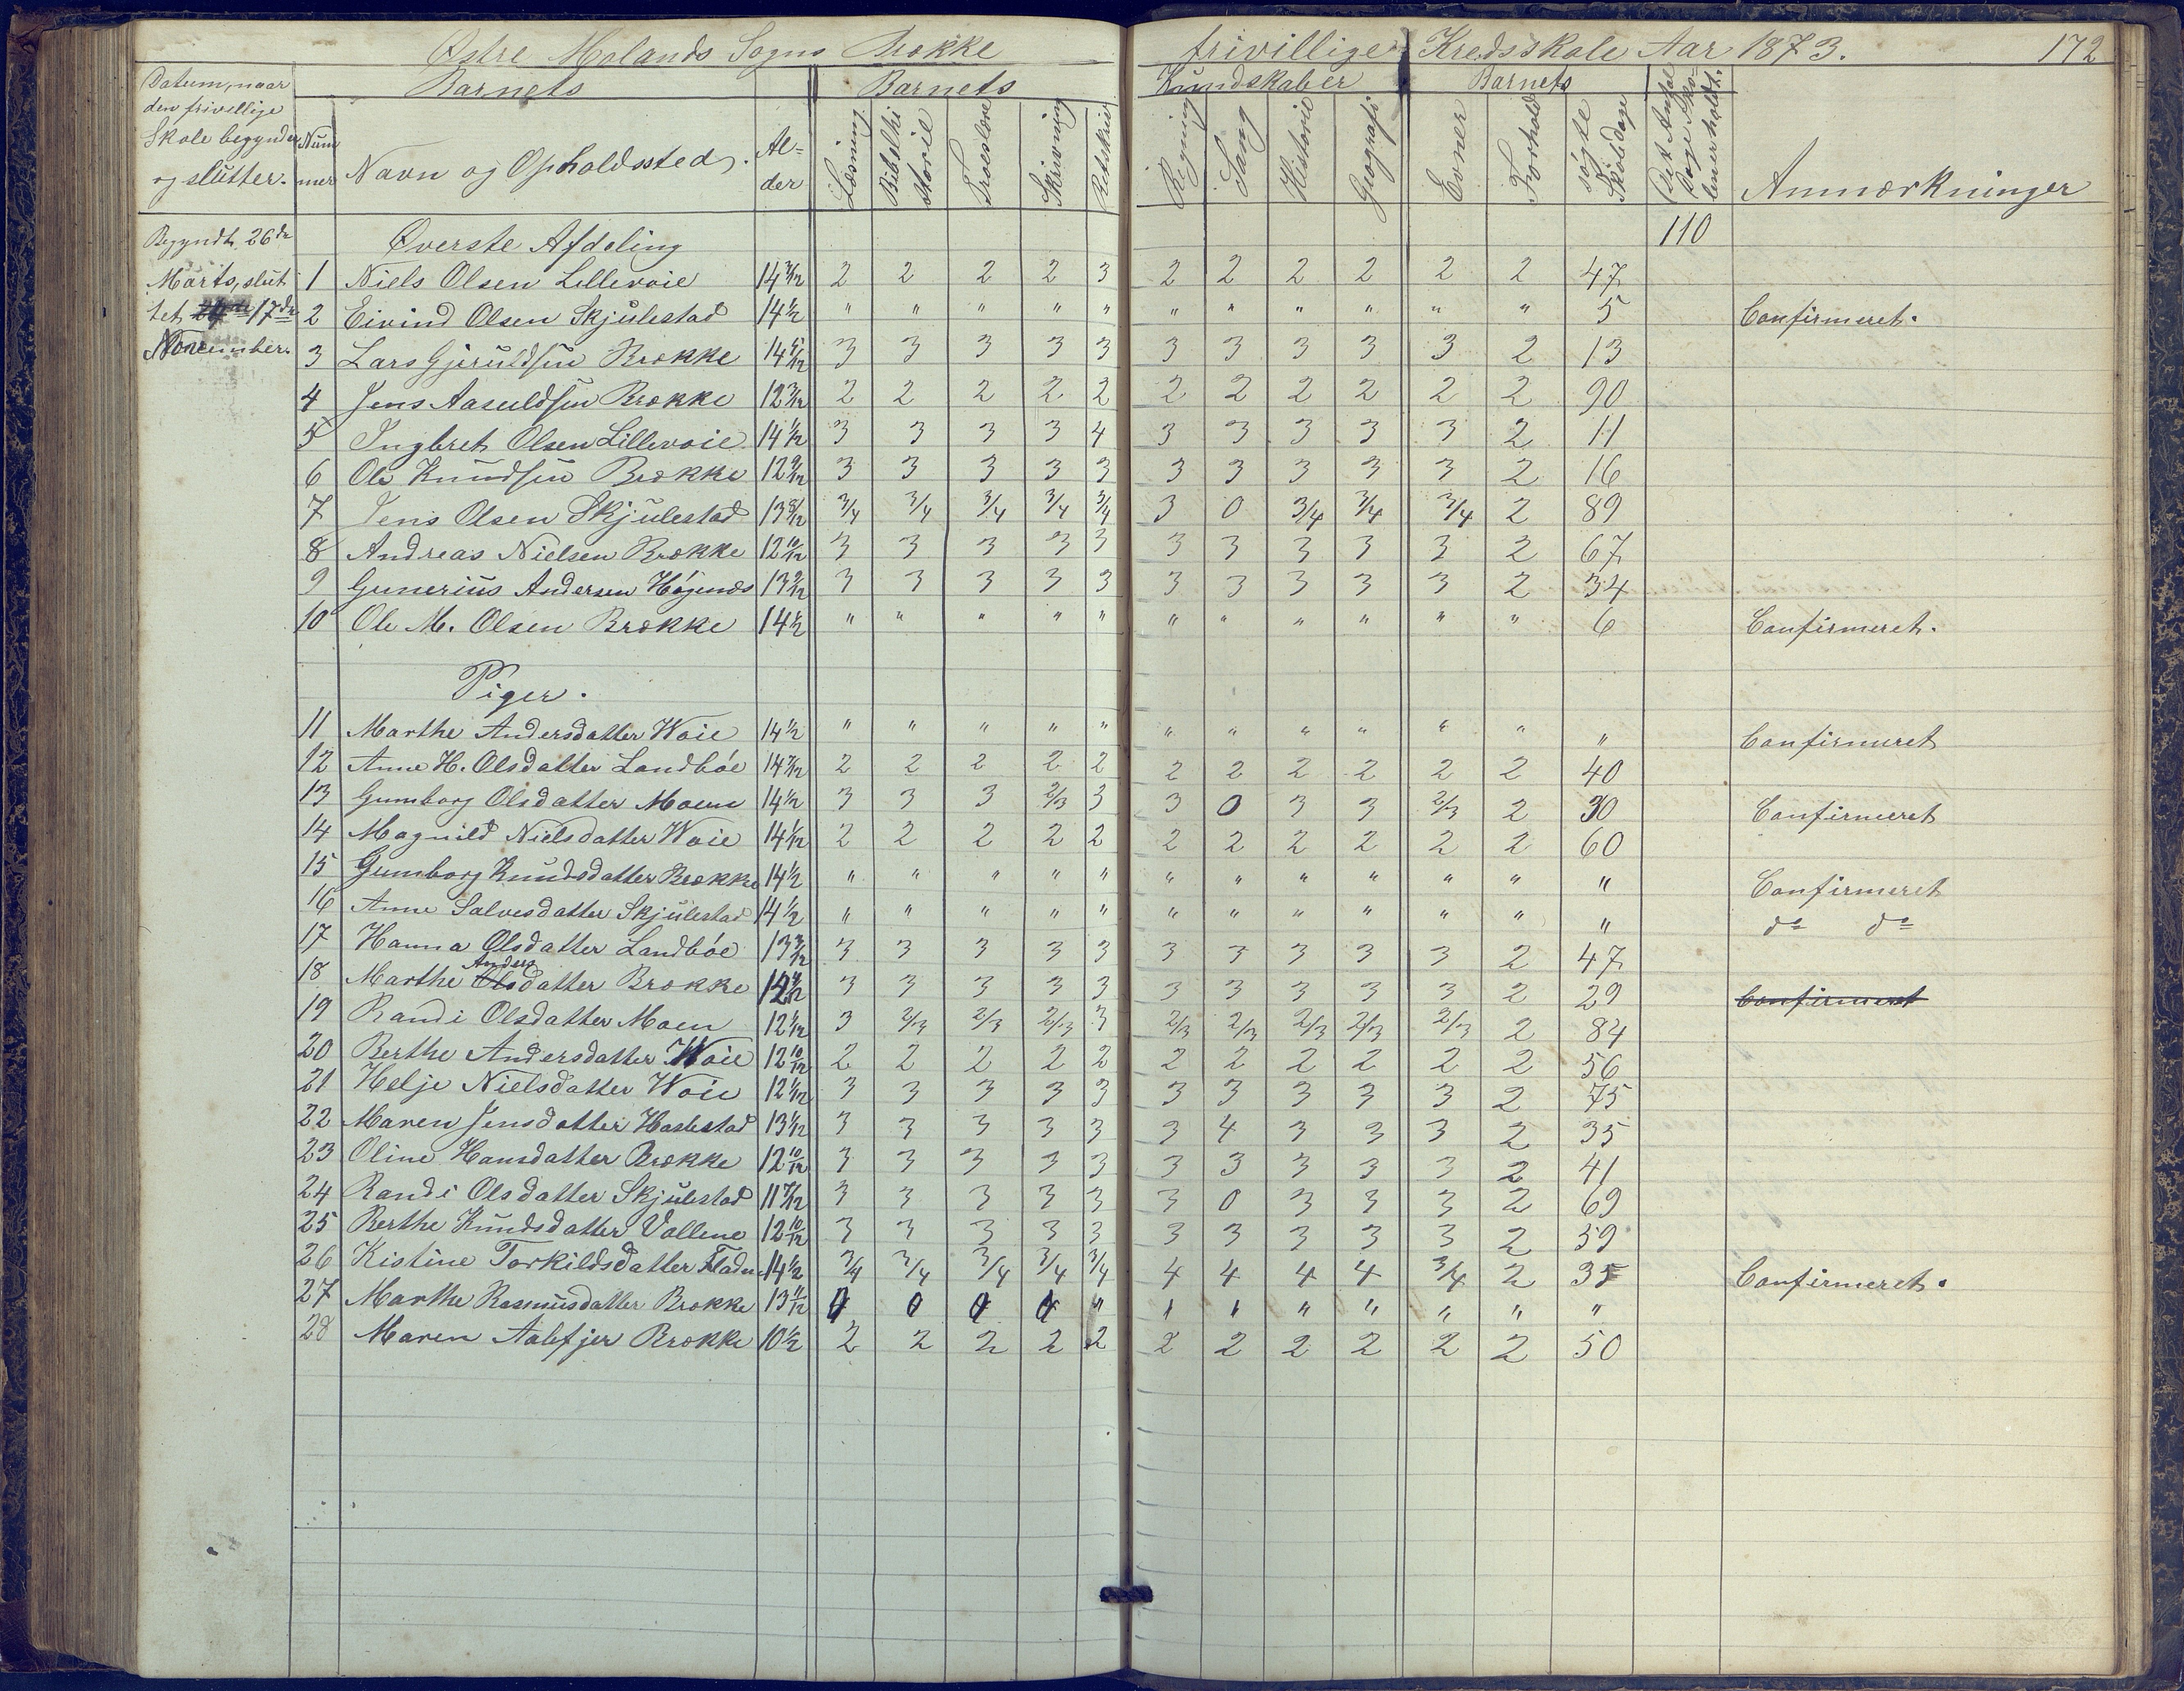 Østre Molands Sogns Brække frivillige Kredsskole Aar 1873. 172
Datum, naar den frivillige Skole begynder og slutter. | Nummer | Barnets Navn og Opholdssted. | Alder | Barnets Kundskaber | Barnets | Det Antal Dage Skolen er holdt. | Anmærkninger
Læsning | Bibelhistorie | Troeslære | Skrivning | Retskriv | Regning | Sang | Historie | Geografi | Evner | Forhold | søgte Skoledage
Begyndt 26de Øverste Afdeling 110
Marts, slut 1 Niels Olsen Lillevoie 14 2 2 2 2 3 2 2 2 2 2 2 47
tet 17de 2 Eivind Olsen Skjulestad 14½ " " " " " " " " " " " 5 Confirmeret.
November. 3 Lars Gjeruldsen Brække 14 3 3 3 3 3 3 3 3 3 3 2 13
4 Jens Aasuldsen Brække 12 3/12 2 2 2 2 2 2 2 2 2 2 2 90
5 Ingbret Olsen Lillevoie 14 1/12 3 3 3 3 4 3 3 3 3 3 2 11
6 Ole Knudsen Brække 12 9/12 3 3 3 3 3 3 3 3 3 3 2 16
7 Jens Olsen Skjulestad 13 8/12 3/4 3/4 3/4 3/4 3/4 3 0 3/4 3/4 3/4 2 89
8 Andreas Nielsen Brække 12 10/12 3 3 3 3 3 3 3 3 3 3 2 67
9 Gunerius Andersen Høgenæs 13 9/12 3 3 3 3 3 3 3 3 3 3 2 34
10 Ole M. Olsen Brække 14½ " " " " " " " " " " " 6 Confirmeret.
Piger.
11 Marthe Andersdatter Woie 14½ " " " " " " " " " " " " Confirmeret
12 Anne H. Olsdatter Landbøe 14 2 2 2 2 2 2 2 2 2 2 2 40
13 Gumborg Olsdatter Moen 14½ 3 3 3 2/3 3 3 0 3 3 2/3 2 30 Confirmeret
14 Magnild Nielsdatter Woie 14 1/12 2 2 2 2 2 2 2 2 2 2 2 60
15 Gumborg Knudsdatter Brække 14½ " " " " " " " " " " " " Confirmeret
16 Anne Salvesdatter Skjulestad 14½ " " " " " " " " " " " " do do
17 Hanna Olsdatter Landbøe 13 3/12 3 3 3 3 3 3 3 3 3 3 2 47
Anders
18 Marthe Olsdatter Brække 3 3 3 3 3 3 3 3 3 3 2 29 Confirmeret
19 Randi Olsdatter Moen 12 1/12 3 2/3 2/3 2/3 3 2/3 2/3 2/3 2/3 2/3 2 84
20 Berthe Andersdatter Woie 12 10/12 2 2 2 2 2 2 2 2 2 2 2 56
21 Helje Nielsdatter Woie 12 1/12 3 3 3 3 3 3 3 3 3 3 2 75
22 Maren Jensdatter Haslestad 13 1/12 3 3 3 3 3 3 4 3 3 3 2 35
23 Oline Hansdatter Brække 12 10/12 3 3 3 3 3 3 3 3 3 3 2 41
24 Randi Olsdatter Skjulestad 11 7/12 3 3 3 3 3 3 0 3 3 3 2 69
25 Berthe Knudsdatter Vallene 12 10/12 3 3 3 3 3 3 3 3 3 3 2 59
26 Kistine Torkildsdatter 14½ 3/4 3/4 3/4 3/4 3/4 4 4 4 4 3/4 2 35 Confirmeret.
27 Marthe Rasmusdatter Brække 13 11/12 0 0 0 0 " " " " " " " "
28 Maren Aalefjer Brække 10½ 2 2 2 2 2 2 2 2 2 2 2 50